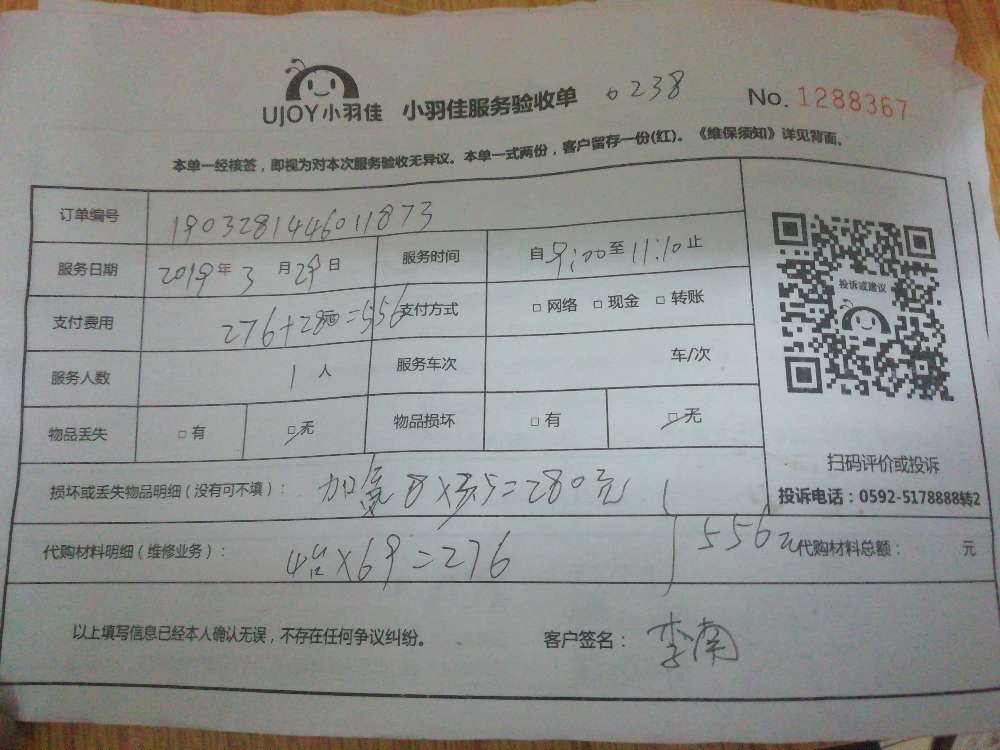 UJOY小羽佳 小羽佳服务验收单 0238 No. 1288367
本单一经核签，即视为对本次服务验收无异议。本单一式两份，客户留存一份(红)。《维保须知》详见背面。
订单编号 1903281446011873
服务日期 2019年3月29日 服务时间 自9:00至11:10止
支付费用 276+280=556 支付方式 □网络 □现金 □转账
服务人数 1人 服务车次 车/次
物品丢失 □有 □无 物品损坏 □有 □无
投诉或建议
扫码评价或投诉
投诉电话：0592-5178888转2
损坏或丢失物品明细（没有可不填）： 加氢 8×35=280元
代购材料明细（维修业务）： 4台×69=276 556元 代购材料总额： 元
以上填写信息已经本人确认无误，不存在任何争议纠纷。 客户签名： 李南